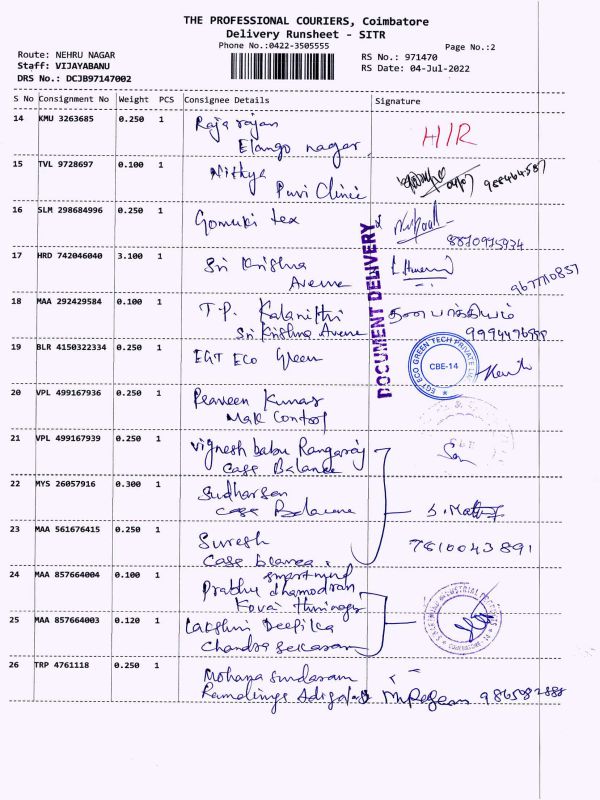 THE PROFESSIONAL COURIERS, Coimbatore
Delivery Runsheet - SITR
Phone No.:0422-3505555
Page No.:2
Route: NEHRU NAGAR
Staff: VIJAYABANU
DRS No.: DCJB97147002
RS No.: 971470
RS Date: 04-Jul-2022
S No Consignment No Weight PCS Consignee Details Signature
14 KMU 3263685 0.250 1 Rajarajan
Elango nagar. H/R
15 TVL 9728697 0.100 1 Nithya
Puvi Clinic
16 SLM 298684996 0.250 1 Gomuki tex
8870975934
17 HRD 742046040 3.100 1 Sri Krishna
Avenue
9677710857
18 MAA 292429584 0.100 1 T.P. Kalanithi
Sri Krishna Avenue
தன பாக்கியம்
DOCUMENT DELIVERY
19 BLR 4150322334 0.250 1 EGT ECO Green
EGT ECO GREEN TECH PRIVATE LIMITED
CBE-14
20 VPL 499167936 0.250 1 Praveen Kumar
Mak Control
21 VPL 499167939 0.250 1 Vignesh babu Rangaraj
Case Balance
22 MYS 26057916 0.300 1 Sudharsan
Case
23 MAA 561676415 0.250 1 Suresh
Case blanca.
7810043891
24 MAA 857664004 0.100 1 Prabhu dhamodran
Kovai
25 MAA 857664003 0.120 1 Lakshmi Deepika
Chandra Sekaran
26 TRP 4761118 0.250 1 Mohana Sundaram
Ramalinga